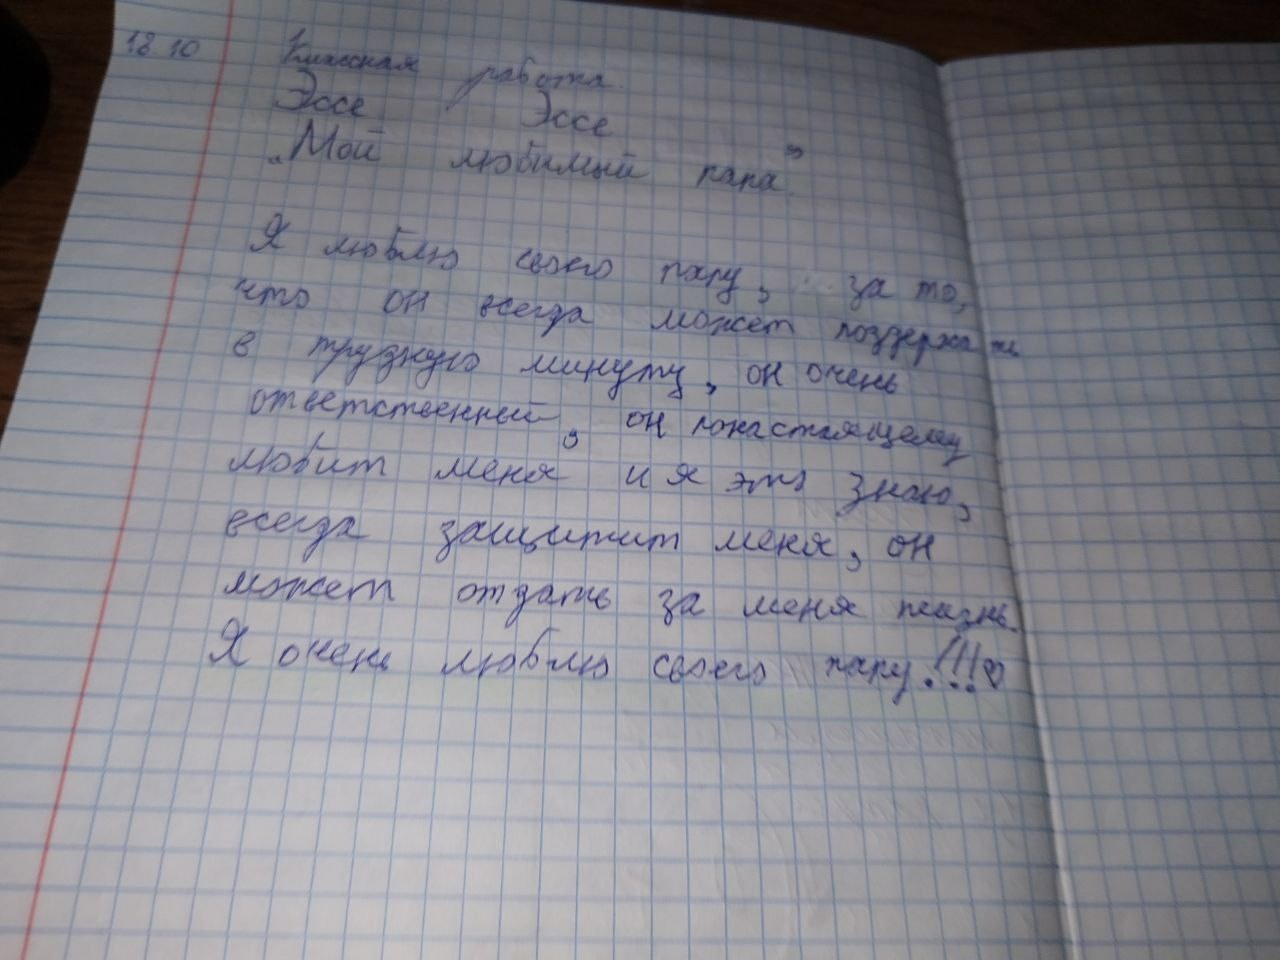 18 10
Классная работа.
Эссе Эссе
„Мой любимый папа”
Я люблю своего папу, за то,
что он всегда может поддержать
в трудную минуту, он очень
ответственный, он понастоящему
любит меня и я это знаю,
всегда защитит меня, он
может отдать за меня жизнь.
Я очень люблю своего папу!!!♡